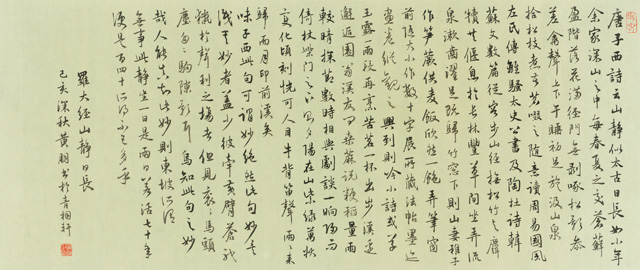 唐子西詩云山靜似太古日長如小年
余家深山之中每春夏之交蒼蘚
盈階落花滿徑門無剝啄松影參
差禽聲上下午睡初足旋汲山泉
拾松枝煮苦茗啜之隨意讀周易國風
左氏傳離騷太史公書及陶杜詩韓
蘇文數篇從容步山徑撫松竹與麛
犢共偃息於長林豐草間坐弄流
泉漱齒濯足既歸竹窗下則山妻稚子
作筍蕨供麥飯欣然一飽弄筆窗
前隨大小作數十字展所藏法帖墨迹
畫卷縱觀之興到則吟小詩或草
玉露一兩段再烹苦茗一杯出步溪邊
邂逅園翁溪友問桑麻說粳稻量雨
較時探節數時相與劇談一晌歸而
倚杖柴門之下則夕陽在山紫綠萬狀
變化頃刻恍可人目牛背笛聲兩兩來
歸而月印前溪矣
味子西此句可謂妙絕然此句妙矣
識其妙者蓋少彼牽黃臂蒼馳
獵於聲利之場者但見衮衮馬頭
塵匆匆駒隙影耳烏知此句之妙
哉人能真知此妙則東坡所謂
無事此靜坐一日是兩日若活七十年
便是百四十所得不已多乎
羅大經山靜日長
己亥深秋黃書於青桐軒